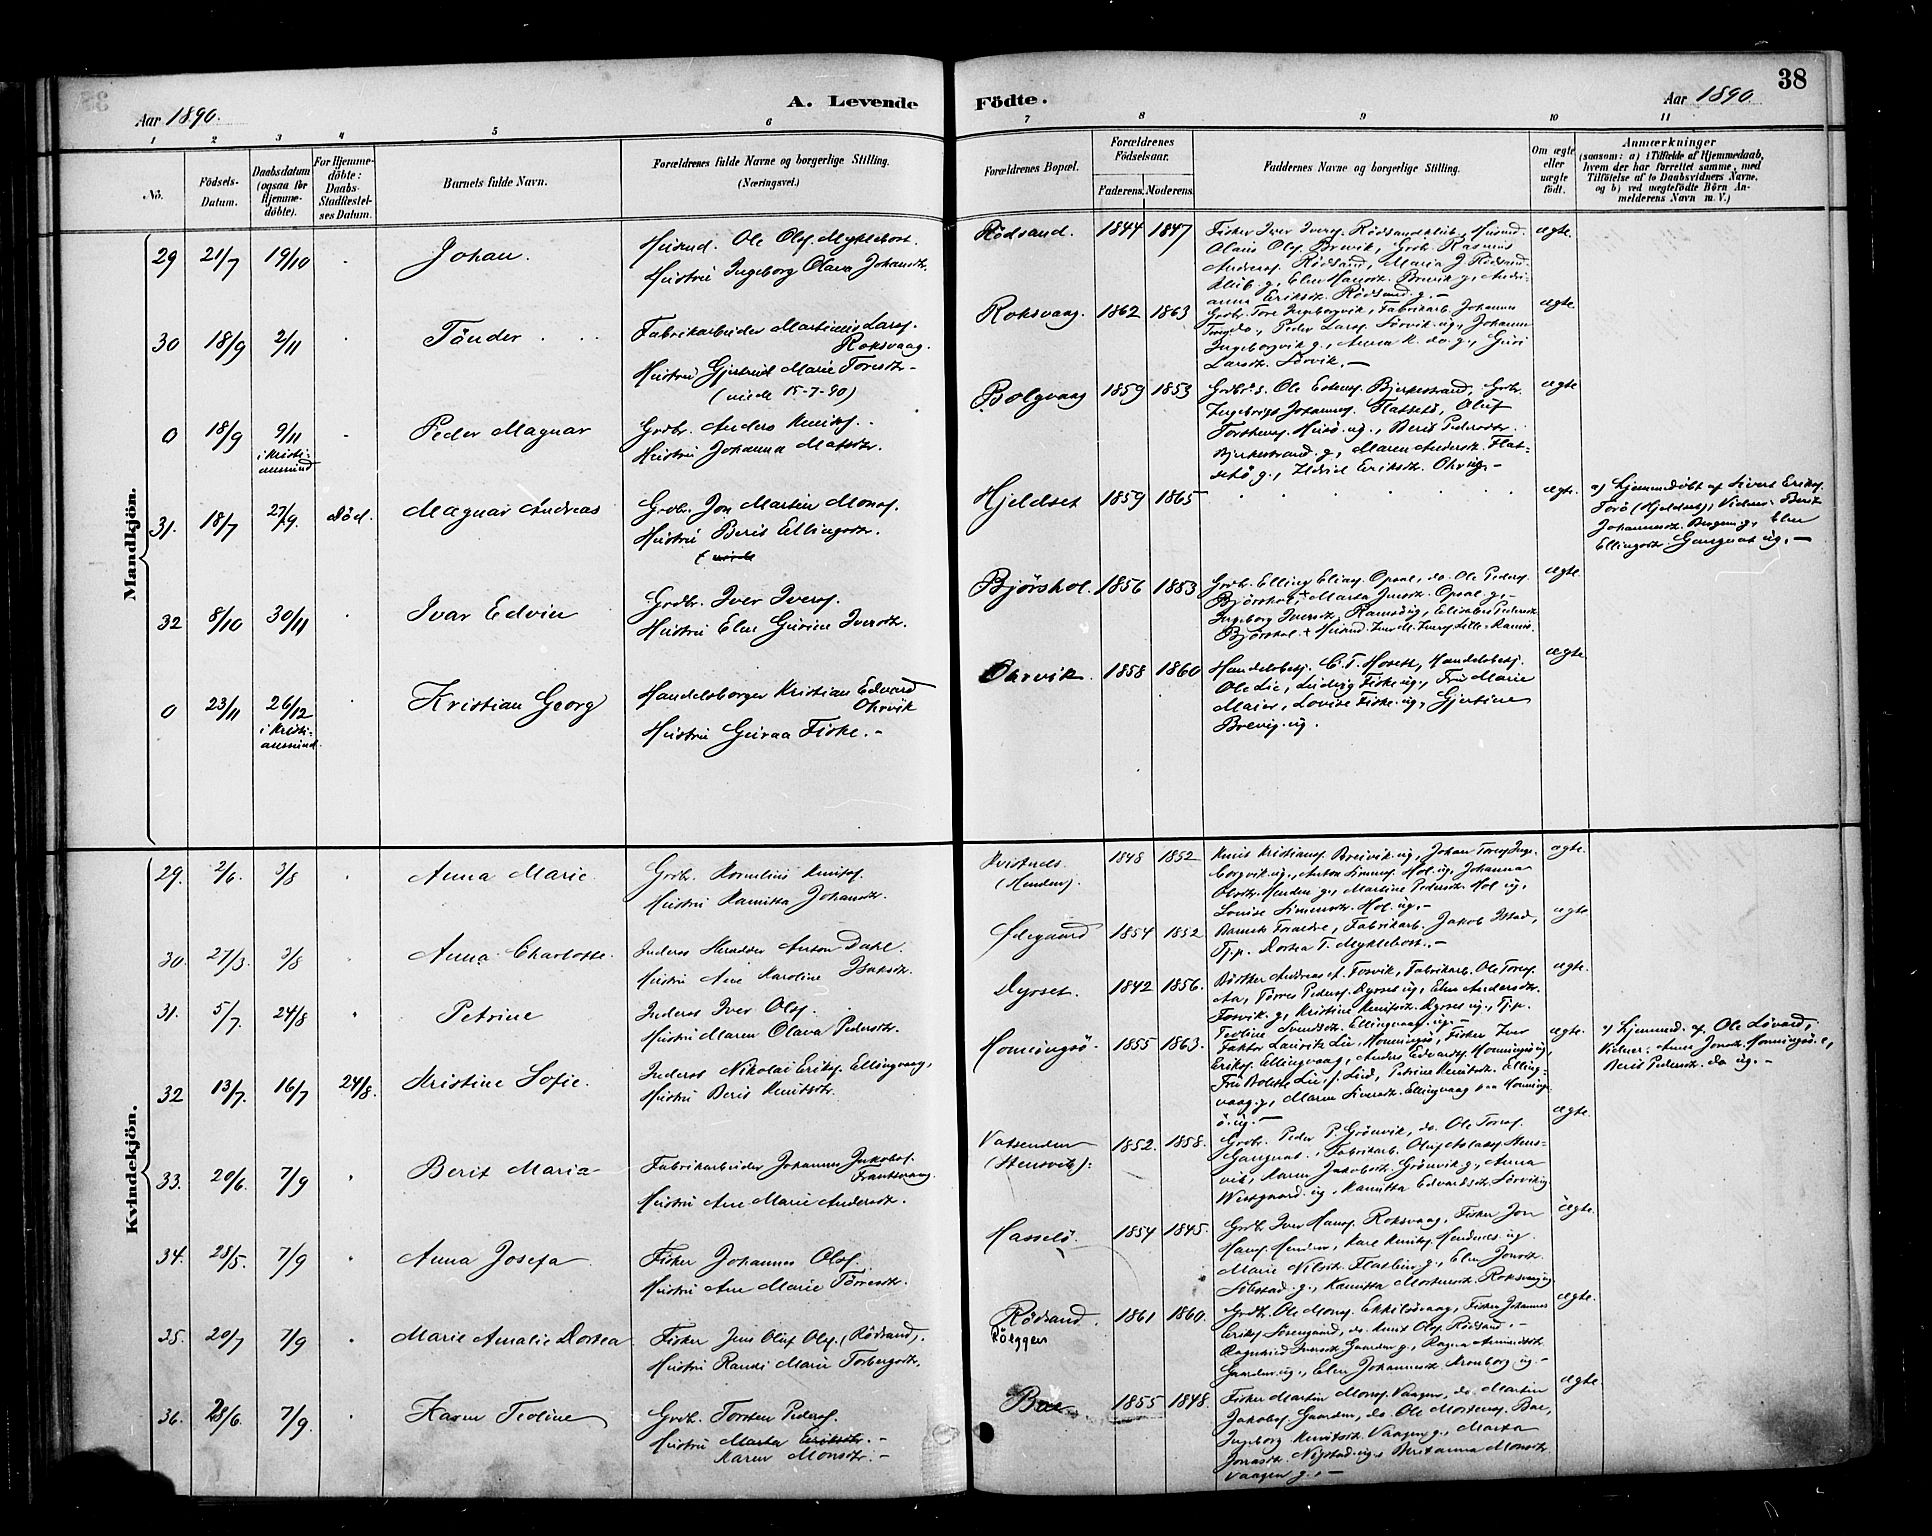 38
Aar 1890.
A. Levende
Födte.
Aar 1890
1 2 3 4 5 6 7 8 9 10 11
No.
Födsels-
Datum.
Daabsdatum
(ogsaa for
Hjemme-
döbte).
For Hjemme-
döbte:
Daabs-
Stadfæstel-
ses Datum.
Barnets fulde Navn.
Forældrenes fulde Navne og borgerlige Stilling.
(Næringsvei.)
Forældrenes Bopæl.
Forældrenes
Födselsaar.
Faderens. Moderens.
Faddernes Navne og borgerlige Stilling.
Om ægte
eller
uægte
födt.
Anmærkninger
(saasom: a) i Tilfælde af Hjemmedaab,
hvem der har forrettet samme, med
Tilföielse af to Daabsvidners Navne,
og b) ved uægtefödte Börn An-
melderens Navn m. V.)
Mandkjön.
29 21/7 19/10 Johan.
Husmd. Ole Olss. Myklebost.
Hustru Ingeborg Olava Johansdtr.
Rödsand. 1844 1847
Fisker Iver Iverss. Rödsandklub, Husmd.
Olaus Olss. Brevik, Grdb. Rasmus
Anderss. Rödsand, Maria J. Rödsand-
klub g., Elen Hansdtr. Brevik g., Andri-
anna Eriksdtr. Rödsand g.–
ægte.
30 18/9 2/11 Tönder
Fabrikarbeider Martinus Larss.
Roksvaag.
Hustru Gjertrud Marie Toresdtr.–
(viede 15-7-90)
Roksvaag. 1862 1863
Grdb. Tore Ingeborgvik, Fabrikarb. Johannes
do., Peder Larss. Sörvik ug., Johanna
Ingeborgvik g., Anna K. do g., Guri
Larsdtr. Sörvik.–
ægte
0 18/9 9/11
i Kristi-
ansund
Peder Magnar
Grdbr. Anders Knuts.
Hustru Johanna Matsdtr.
Bolgvaag 1859 1853
Grdbr's. Ole Estenss. Bjerkestrand, Grdbr.
Ingebrigt Johanness. Flatsetö, Oluf
Torstenss. Husö ug., Berit Pedersdtr.
Bjerkestrand g., Maren Andersdtr. Flat-
setö g., Ildrid Eriksdtr. Ohrvig.–
ægte
31. 18/7 27/9. död. Magnar Andreas
Grdb. Jon Martin Monss.
Hustru Berit Ellingsdtr.
Hjeldset 1859 1865
ægte.
a) Hjemmedöbt af Sivert Erikss.
Torö (Hjeldset), Vidner: Berit
Johannesdtr. Bergem g., Elen
Ellingsdtr. Gangnat ug.–
32 8/10 30/11 Ivar Edvin
Grdbr. Iver Iverss.
Hustru Elen Gurine Iversdtr.
Bjórshol. 1856 1853
Grdb. Elling Eliass. Opsal, do. Ole Pederss.
Bjórshol, Marta Jonsdtr. Opsal g.,–
Ingeborg Iversdtr. Ramsö ug, Elisabet Pedersdtr.
ægte
0 23/11 26/12
i Kristi-
ansund.
Kristian Georg
Handelsborger Kristian Edvard
Ohrvik
Hustru Guraa Fiske.–
Ohrvik 1858 1860
Handelsbestj. C. T. Hoset, Handelsbetj.
Ole Lie, Ludvig Fiske ug., Fru Marie
Maier, Lovise Fiske ug., Gjertine
Brevig. ug.
ægte
Kvindekjön.
29. 2/6. 3/8 Anna Marie.
Grdbr. Kornelius Knuts.
Hustru Kamitta Johansdtr.
(Henden). 1848 1852
Knut Kristianss. Breivik ug., Johan Toress. Inge-
borgvik ug., Anton Simonss. Hol ug, Johanna
Olsdtr. Henden g., Martine Pedersdtr. Hol ug,
Lovise Simonsdtr. Hol ug.–
ægte.
30. 27/3. 3/8 Anna Charlotte.
Inderst Anton Dahl.
Hustru Ane Karoline Isaksdtr.
Ödegaard 1854 1852
Barnets Forældre, Fabrikarb. Jakob Istad,
Tj.p. Dortea T. Myklebost.–
ægte
31. 5/7. 24/8 Petrine
Inderst Iver Olss.
Hustru Maren Olava Pedersdtr.
Dyrset. 1842 1856.
Bödker Andreas A. Tosvik, Fabrikarb. Ole Toress.
Aa, Tórres Pederss. Dyrset ug, Elen Andersdtr.
Tosvik. g, Kristine Knutsdtr. Dyrset ug., Tj.p.
Teoline Svendsdtr. Ellingvaag ug.–
ægte.
32 13/7. 16/7 24/8. Kristine Sofie.
Inderst Nikolai Erikss. Ellingvaag,
Hustru Berit Knutsdtr.
Honningsö. 1855 1863.
Faktor Lauritz Lie, Honningsö, Fisker Iver
Erikss. Ellingvaag, Anders Edvardss. Honningsö ug,
Fru Bolette Lie, Petrine Knutsdtr. Elling-
vaag g., Maren Siversdtr. Ellingvaag paa Honnings-
ö ug.–
ægte.
a) Hjemmed. af Ole Lövard,
Vidner: Anne Jonsdtr. Honningsö e,
Berit Pedersdtr. do ug.–
33. 20/6. 7/9 Berit Maria
Fabrikarbeider Johannes Jakobss.
Frantsvaag.
Hustru Ane Marie Andersdtr.
Vatsenden
(Stensvik). 1852. 1858.
Grdb. Peder P. Grönvik, do. Ole Toress.
Gangnat, Fabrikarb. Oluf Aslakss. Stens-
vik, Karen Jakobsdtr. Grönvik g., Anna
Westgaard. ug, Kamitta Edvardsdtr. Sörvik ug
ægte.
34. 28/5. 7/9 Anna Josefa
Fisker Johannes Olss.
Hustru Ane Marie Törresdtr.
Hasselö. 1854 1845.
Grdb. Iver Hanss. Roksvaag, Fisker Jon
Hanss. Henden, Karl Knuts. Hendnes ug
Marie Nilsdtr. Flatbui g., Elen Jonsdtr.
Sibstad g., Kamitta Mortensdtr. Roksvaag ug
ægte.
35. 20/7 7/9 Marie Amalie Dortea
Fisker Jens Oluf Olss. (Rödsand).
Hustru Randi Marie Torbergsdtr.
Rödsand.
Röeggen 1861 1860.
Grdb. Ole Monss. Ekkilsövaag, Fisker Johannes
Erikss. Gaarden, do. Knut Olss. Rödsand.–
Ragnhild Iversdtr. Gaarden g., Ragna Amundsdtr.
Gaarden ug., Elen Johannesdtr. Kronborg ug.–
ægte
36. 28/6. 7/9. Karen Teoline
Grdb. Torsten Pederss.
Hustru Marta Eriksdtr.–
Karen Monsdtr.–
Bae 1855 1848.
Fisker Martin Monss. Vaagen, do. Martin
Jakobss. Gaarden, do. Ole Mortenss. Bae,
Ingeborg Knutsdtr. Vaagen g., Marta
Jonasdtr. Nystad ug., Beritanna Monsdtr.
Vaagen g.–
ægte